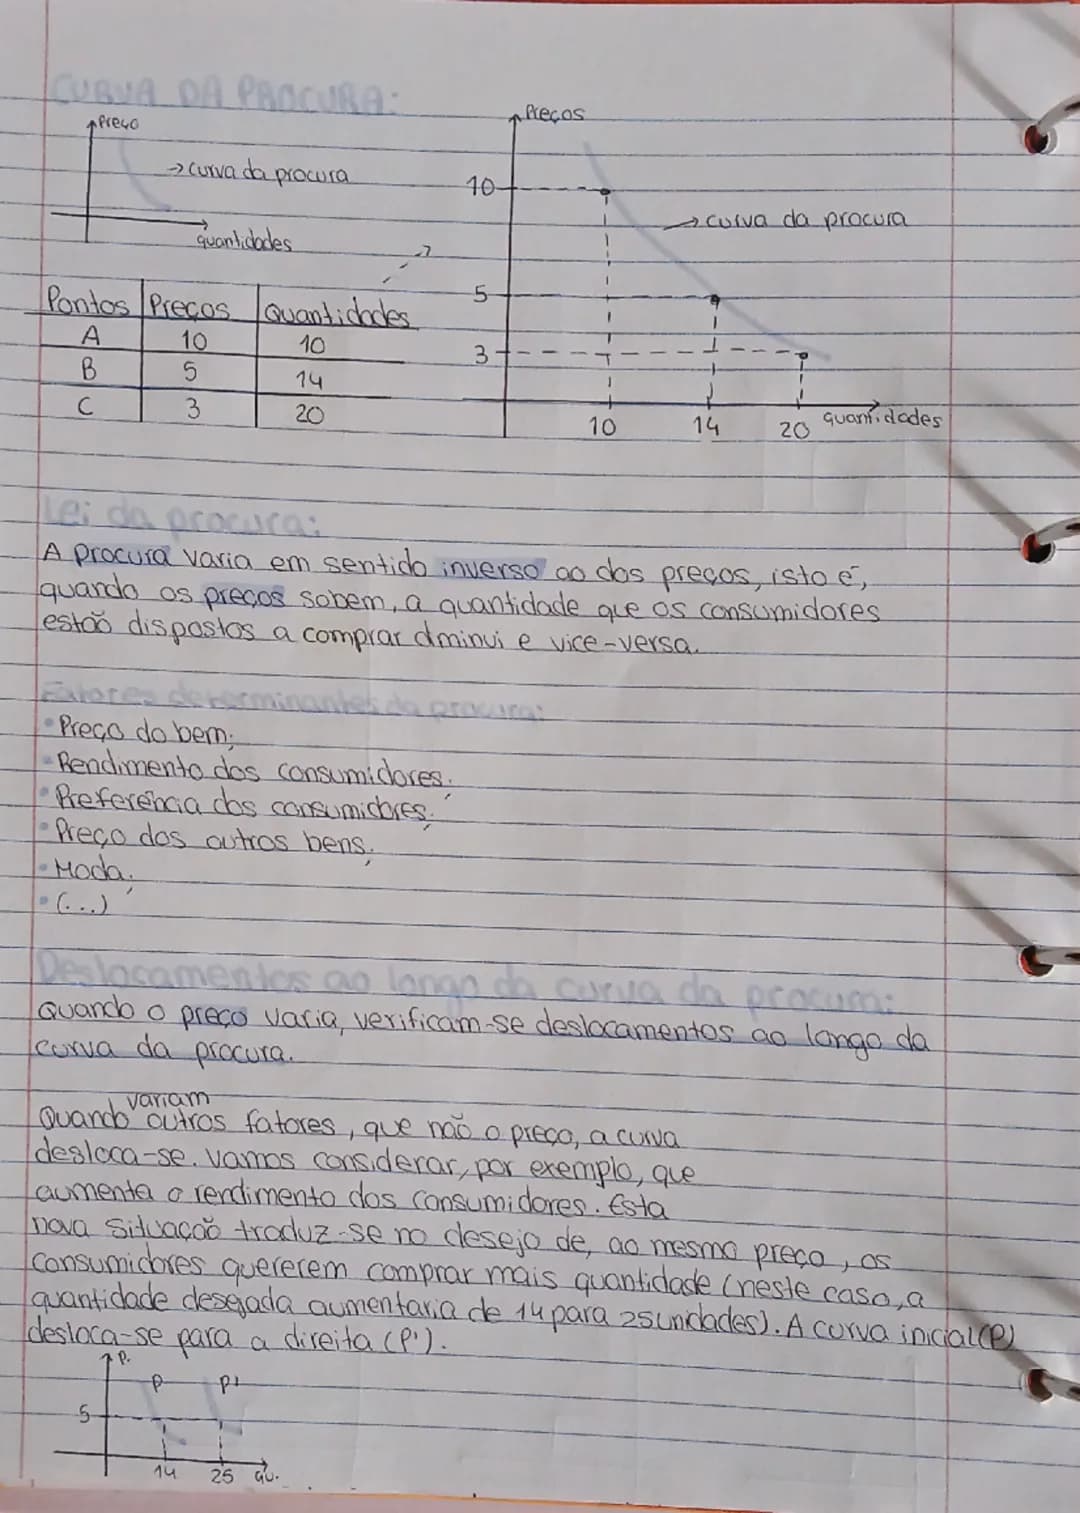 CURVA DA PROCURA:
Preço
→ curva da procura
quantidades
Preços
10
→ curva da procura
5
3
10 14 20 quantidades
Pontos Preços Quantidades
A 10 10
B 5 14
C 3 20
Lei da procura:
A procura varia em sentido inverso ao dos preços, isto é,
quando os preços sobem, a quantidade que os consumidores
estão dispostos a comprar dminui e vice-versa.
Fatores determinantes da procura:
• Preço do bem;
• Rendimento dos consumidores;
• Preferência dos consumidores;
• Preço dos outros bens;
• Moda;
• (...)
Deslocamentos ao longo da curva da procura:
Quando o preço varia, verificam-se deslocamentos ao longo da
curva da procura.
variam
Quando outros fatores, que não o preço, a curva
desloca-se. Vamos considerar, por exemplo, que
aumenta o rendimento dos consumidores. Esta
nova situação traduz-se no desejo de, ao mesmo preço, os
consumidores quererem comprar mais quantidade (neste caso, a
quantidade desejada aumentaria de 14 para 25 unidades). A curva inicial (P)
desloca-se para a direita (P').
P.
P P'
5
14 25 qu.